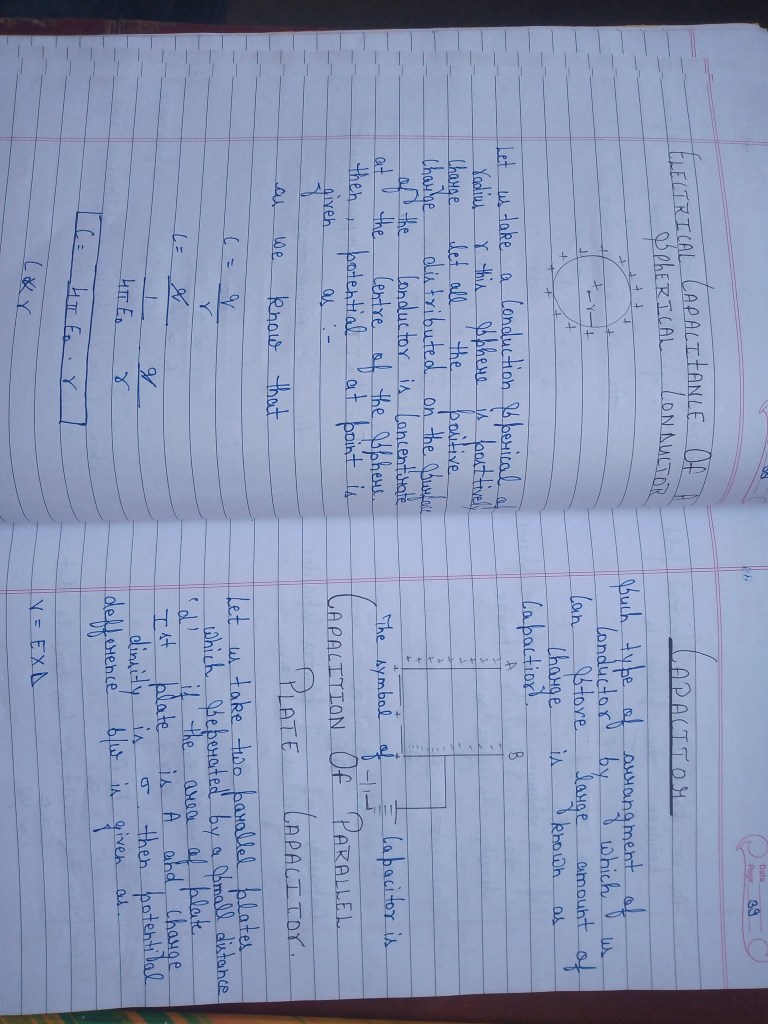 ELECTRICAL CAPACITANCE OF A
SPHERICAL CONDUCTOR
r
Let us take a Conduction Spherical of
radius r this Sphere is positively
Charge let all the positive
Charge distributed on the Surface
of the Conductor is Concentrate
at the Centre of the Sphere.
then, potential at point is
given as :-
as we know that
C = q / r
C = q /
1 / 4πE₀ q / r
C = 4πE₀ . r
C ∝ r
Date
Page 39
CAPACITOR
Such type of arrangment of
Conductor by which us
Can Store large amount of
Charge is known as
Capactior.
A B
The symbol of Capacitor is
CAPACITION OF PARALLEL
PLATE CAPACITOR.
Let us take two parallel plates
which Seperated by a Small distance
'd' if the area of plate
Ist plate is A and Charge
dinsity is σ then potentibal
defference b/w is given as.
V = EXD